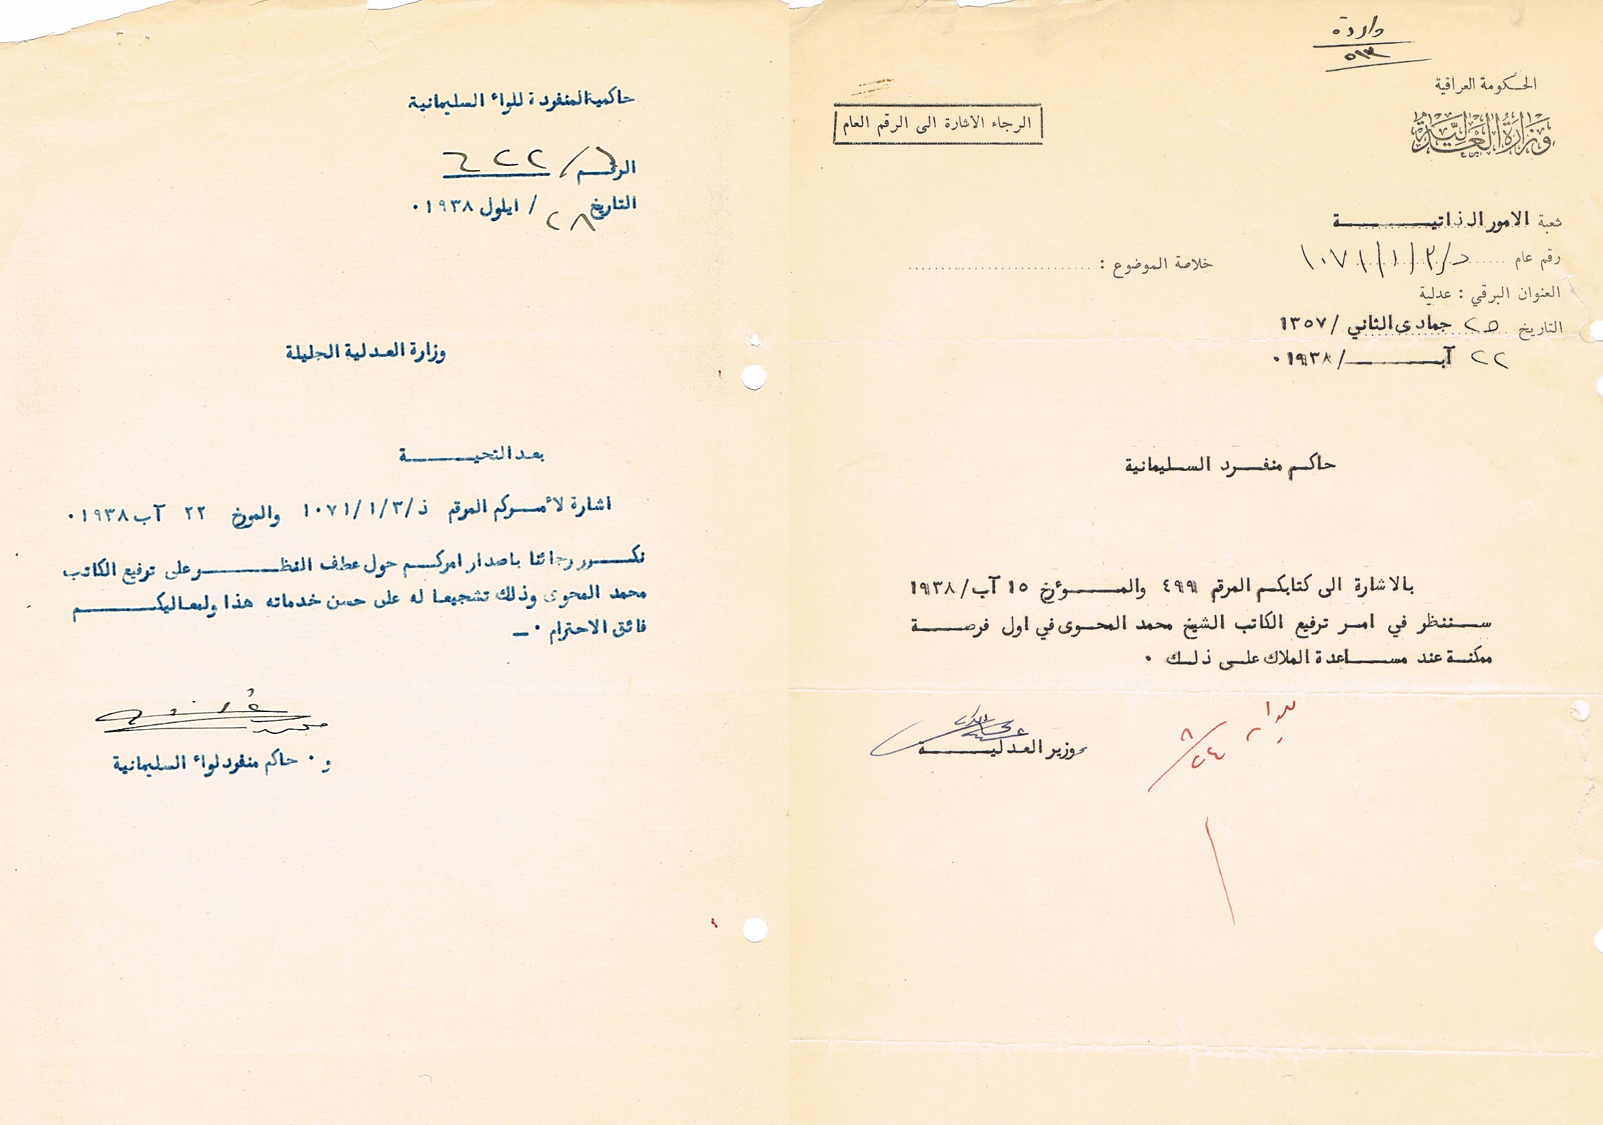 واردة
٥١٣
الحكومة العراقية
وزارة العدلية
الرجاء الاشارة الى الرقم العام
شعبة الامور الذاتيـــــــة
رقم عام ذ/٣/١/١٠٧١
خلاصة الموضوع :
العنوان البرقي : عدلية
التاريخ ٢٥ جمادى الثاني /١٣٥٧
٢٢ آبـــــــــ/١٩٣٨٠
حاكم منفـرد السـليمانية
بالاشارة الى كتابكم المرقم ٤٩٩ والمـــؤرخ ١٥ آب/١٩٣٨
ســننظر في امر ترفيع الكاتب الشيخ محمد المحوى في اول فرصـــة
ممكنة عند مســـاعدة الملاك علـى ذلـك ٠
وزير العدليـــــــة
٢٤/٨
حاكمية المنفردة للواء السليمانية
الرقم / ٦٢٢
التاريخ ٢٨ / ايلول ١٩٣٨٠
وزارة العدلية الجليلة
بعد التحيـــــــة
اشارة لأمــركم المرقم ذ/٣/١/١٠٧١ والمورخ ٢٢ آب ١٩٣٨٠
نكـــرر رجائنا باصدار امركـم حول عطف النظـــــر على ترفيع الكاتب
محمد المحوى وذلك تشجيعا له على حسن خدماته هذا ولمعاليكـــــم
فائق الاحترام ٠ــ
و ٠ حاكم منفرد لواء السليمانية